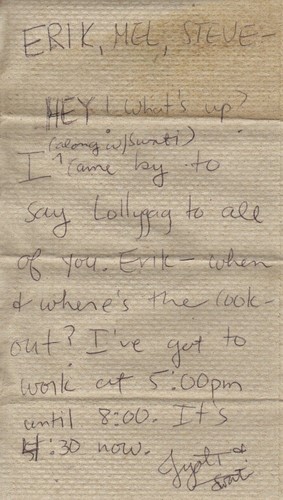 ERIK, MEL, STEVE-
HEY! What's up?
(along w/Swati)
I ^ came by to
say Lollygag to all
of you. Erik- when
& where's the cook-
out? I've got to
work at 5:00pm
until 8:00. It's
4:30 now. Jyoti &
Swati